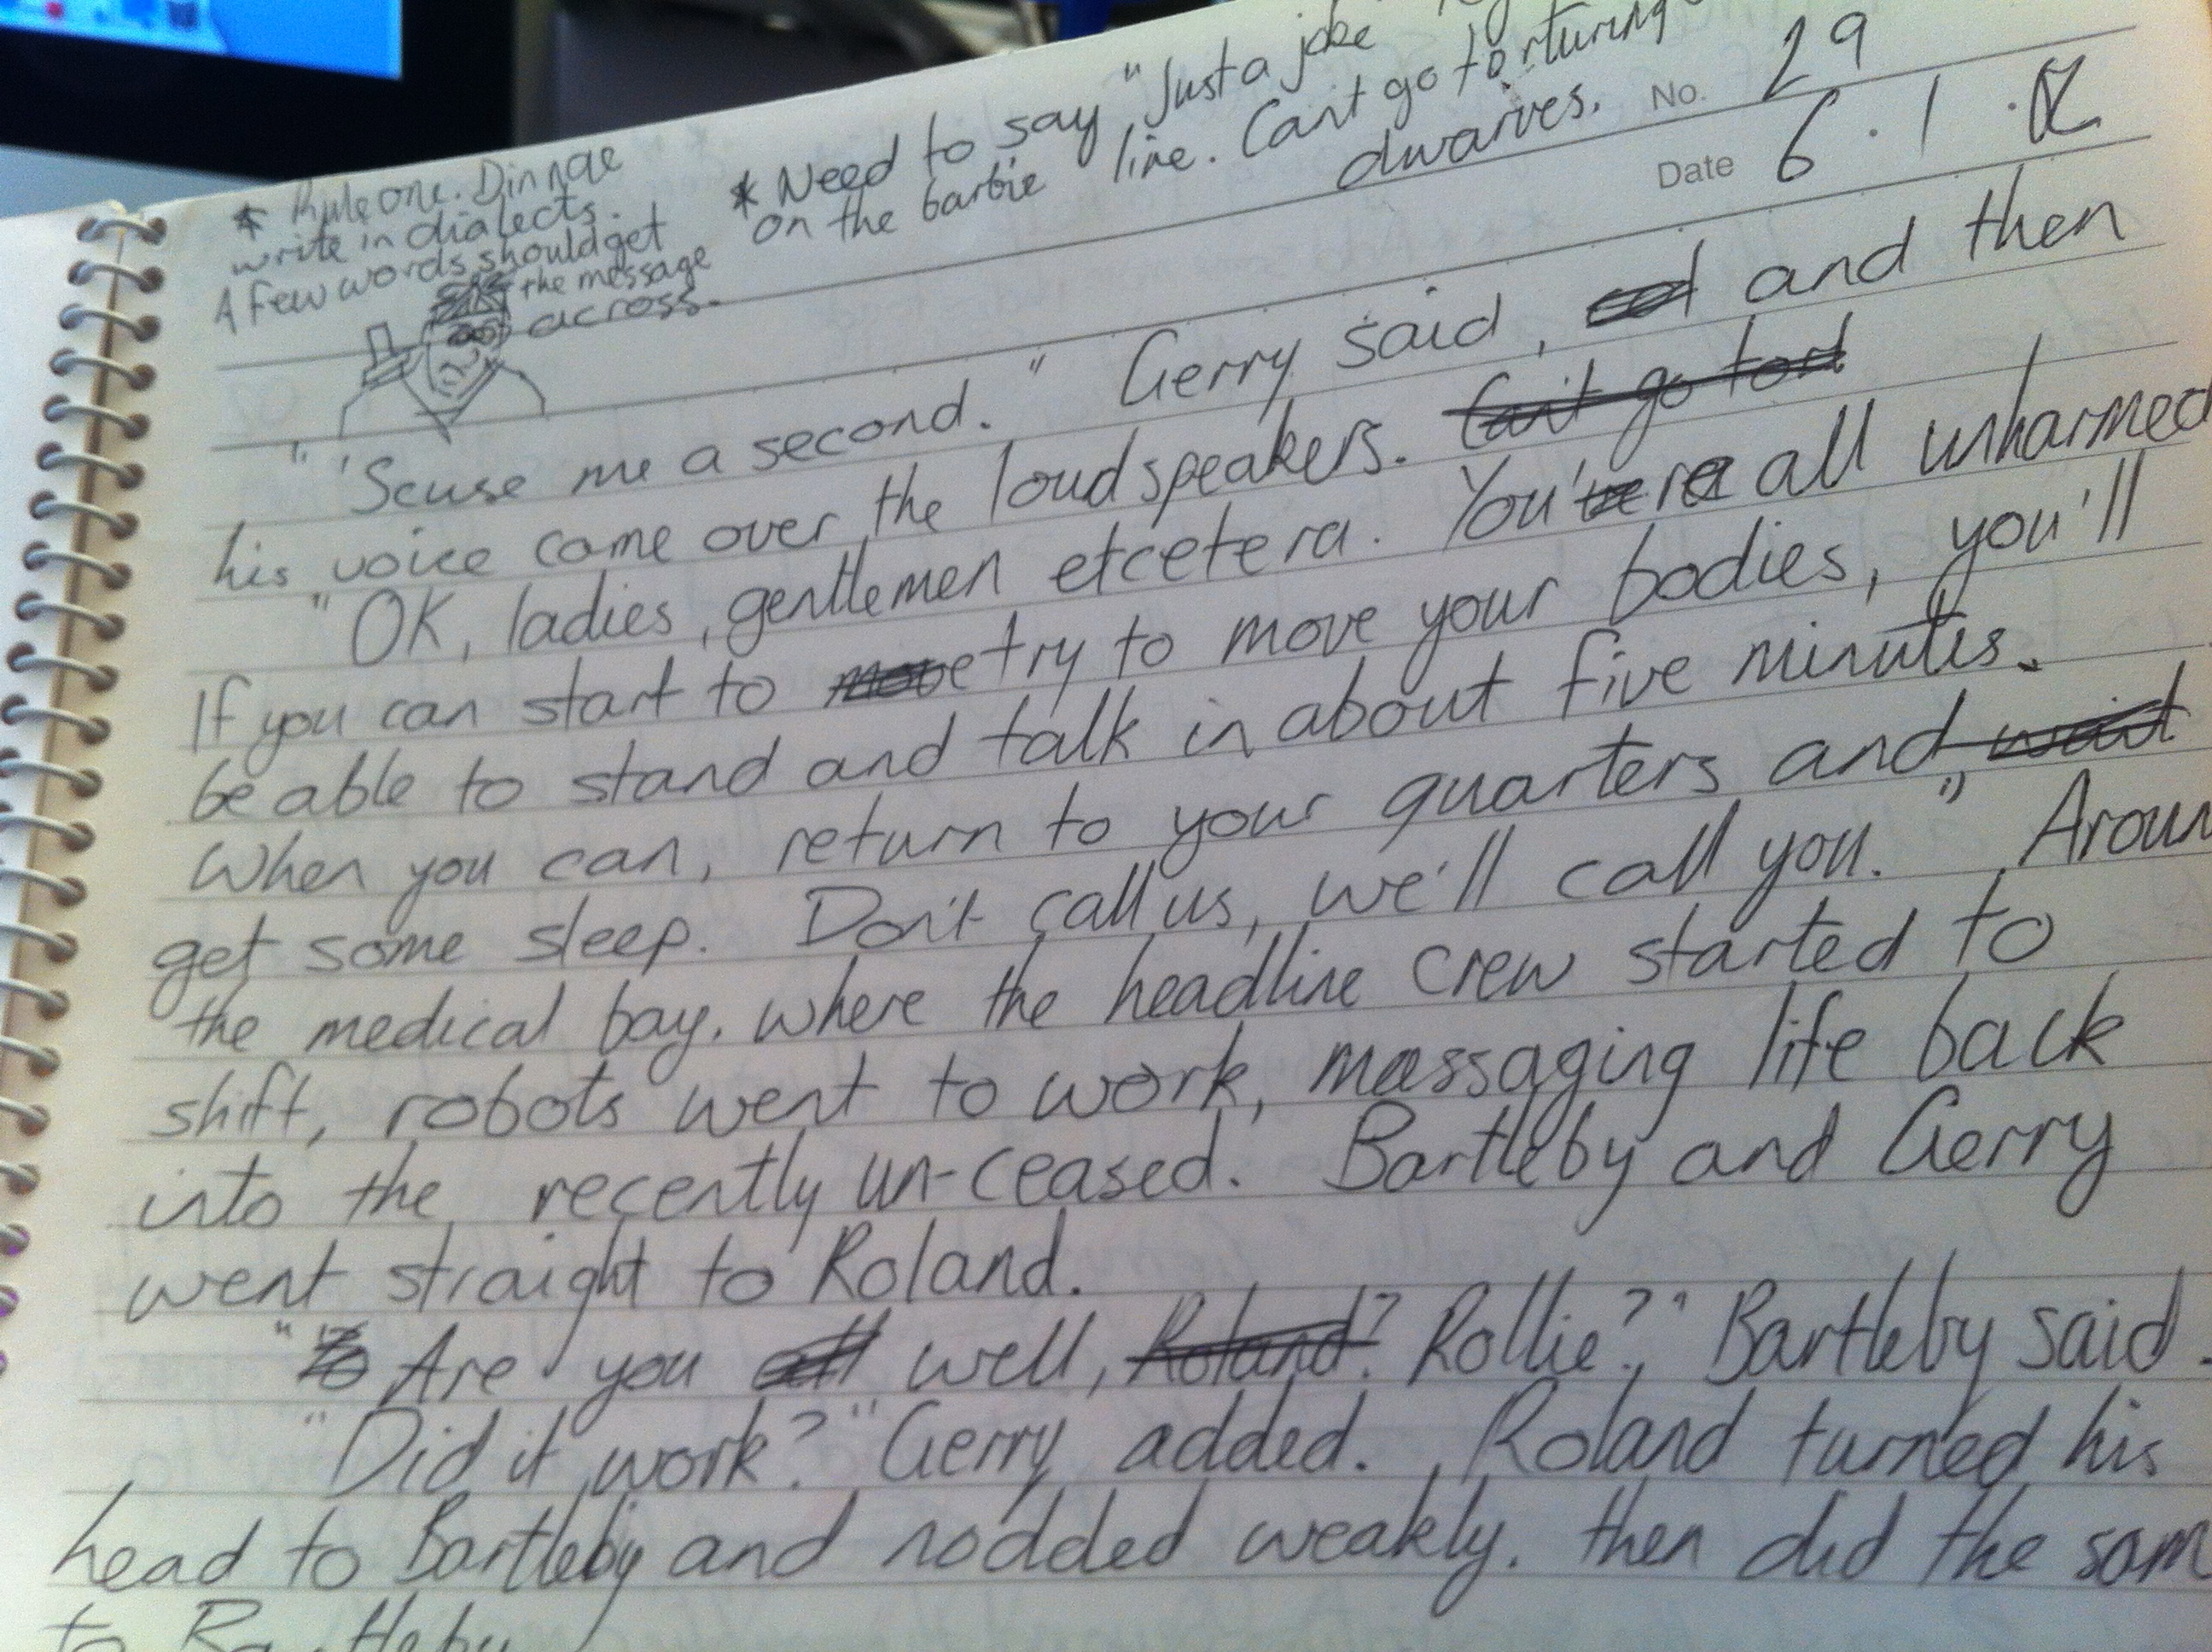 * Rule one. Dinnae
write in dialects.
A few words should get
the message
across.
* Need to say "Just a joke"
on the barbie line. Can't go torturing
dwarves.
No. 29
Date 6.1.
" 'Scuse me a second." Gerry said, and then
his voice came over the loudspeakers. Can't go tort
"OK, ladies, gentlemen etcetera. You're all unharmed
If you can start to move try to move your bodies, you'll
be able to stand and talk in about five minutes.
When you can, return to your quarters and wait
get some sleep. Don't call us, we'll call you." Aroun
the medical bay, where the headline crew started to
shift, robots went to work, massaging life back
into the recently un-ceased. Bartleby and Gerry
went straight to Roland.
"To Are you all well, Roland? Rollie?," Bartleby said.
"Did it work?" Gerry added. Roland turned his
head to Bartleby and nodded weakly. then did the sam
to Bartleby